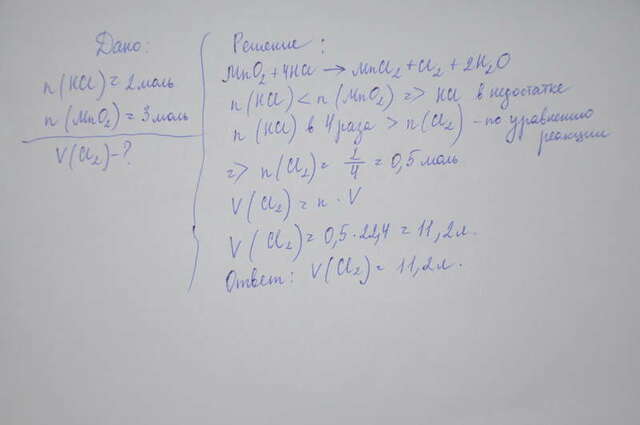 Дано:
n(HCl) = 2 моль
n(MnO₂) = 3 моль
V(Cl₂) - ?
Решение:
MnO₂ + 4HCl → MnCl₂ + Cl₂ + 2H₂O
n(HCl) < n(MnO₂) => HCl в недостатке
n(HCl) в 4 раза > n(Cl₂) - по уравнению
реакции
=> n(Cl₂) = 2/4 = 0,5 моль
V(Cl₂) = n · V
V(Cl₂) = 0,5 · 22,4 = 11,2 л.
Ответ: V(Cl₂) = 11,2 л.